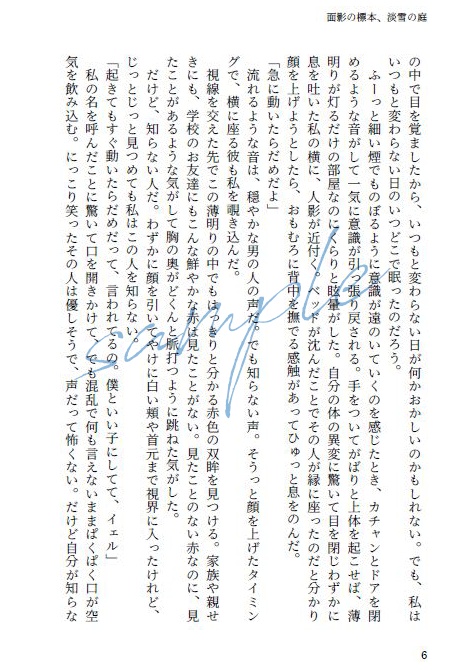 面影の標本、淡雪の庭
の中で目を覚ましたから、いつもと変わらない日が何かおかしいのかもしれない。でも、私は
いつもと変わらない日のいつどこで眠ったのだろう。
　ふーっと細い煙でものぼるように意識が遠のいていくのを感じたとき、カチャンとドアを閉
めるような音がして一気に意識が引っ張り戻される。手をついてがばりと上体を起こせば、薄
明りが灯るだけの部屋なのにくらりと眩暈がした。自分の体の異変に驚いて目を閉じわずかに
息を吐いた私の横に、人影が近付く。ベッドが沈んだことでその人が縁に座ったのだと分かり
顔を上げようとしたら、おもむろに背中を撫でる感触があってひゅっと息をのんだ。
「急に動いたらだめだよ」
　流れるような音は、穏やかな男の人の声だ。でも知らない声。そうっと顔を上げたタイミン
グで、横に座る彼も私を覗き込んだ。
　視線を交えた先でこの薄明りの中でもはっきりと分かる赤色の双眸を見つける。家族や親せ
きにも、学校のお友達にもこんな鮮やかな赤は見たことがない。見たことのない赤なのに、見
たことがあるような気がして胸の奥がどくんと脈打つように跳ねた気がした。
　だけど、知らない人だ。わずかに顔を引いてやけに白い頬や首元まで視界に入ったけれど、
じっとじっと見つめても私はこの人を知らない。
「起きてもすぐ動いたらだめだって、言われてるの。僕といい子にしてて、イェル」
　私の名を呼んだことに驚いて口を開きかけて、でも混乱で何も言えないままぱくぱく口が空
気を飲み込む。にっこり笑ったその人は優しそうで、声だって怖くない。だけど自分が知らな
sample
6